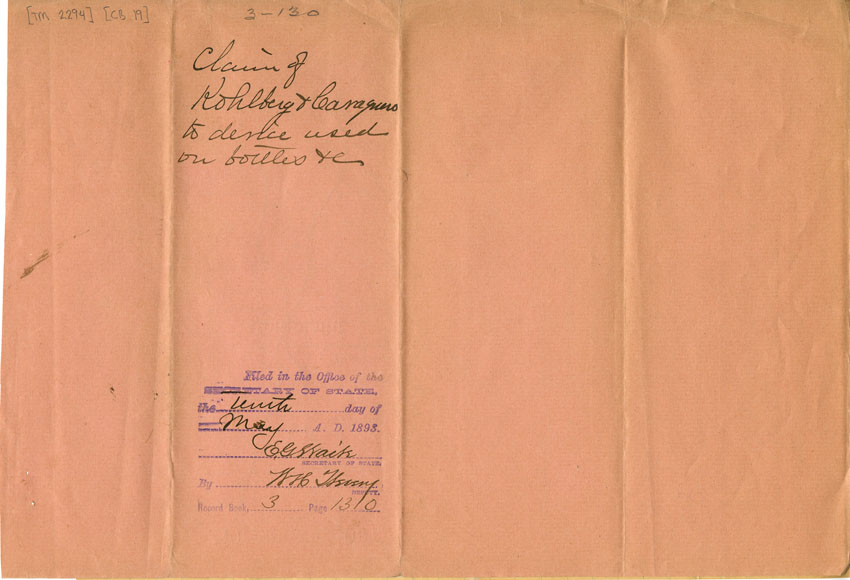 [TM 2294] [CB 19]
3-130
Claim of
Kohlberg & Cavagnaro
to device used
on bottles &c
Filed in the Office of the
SECRETARY OF STATE,
the Tenth day of
May A. D. 1893.
E G Waite
SECRETARY OF STATE,
By W H
DEPUTY,
Record Book, 3 Page 130